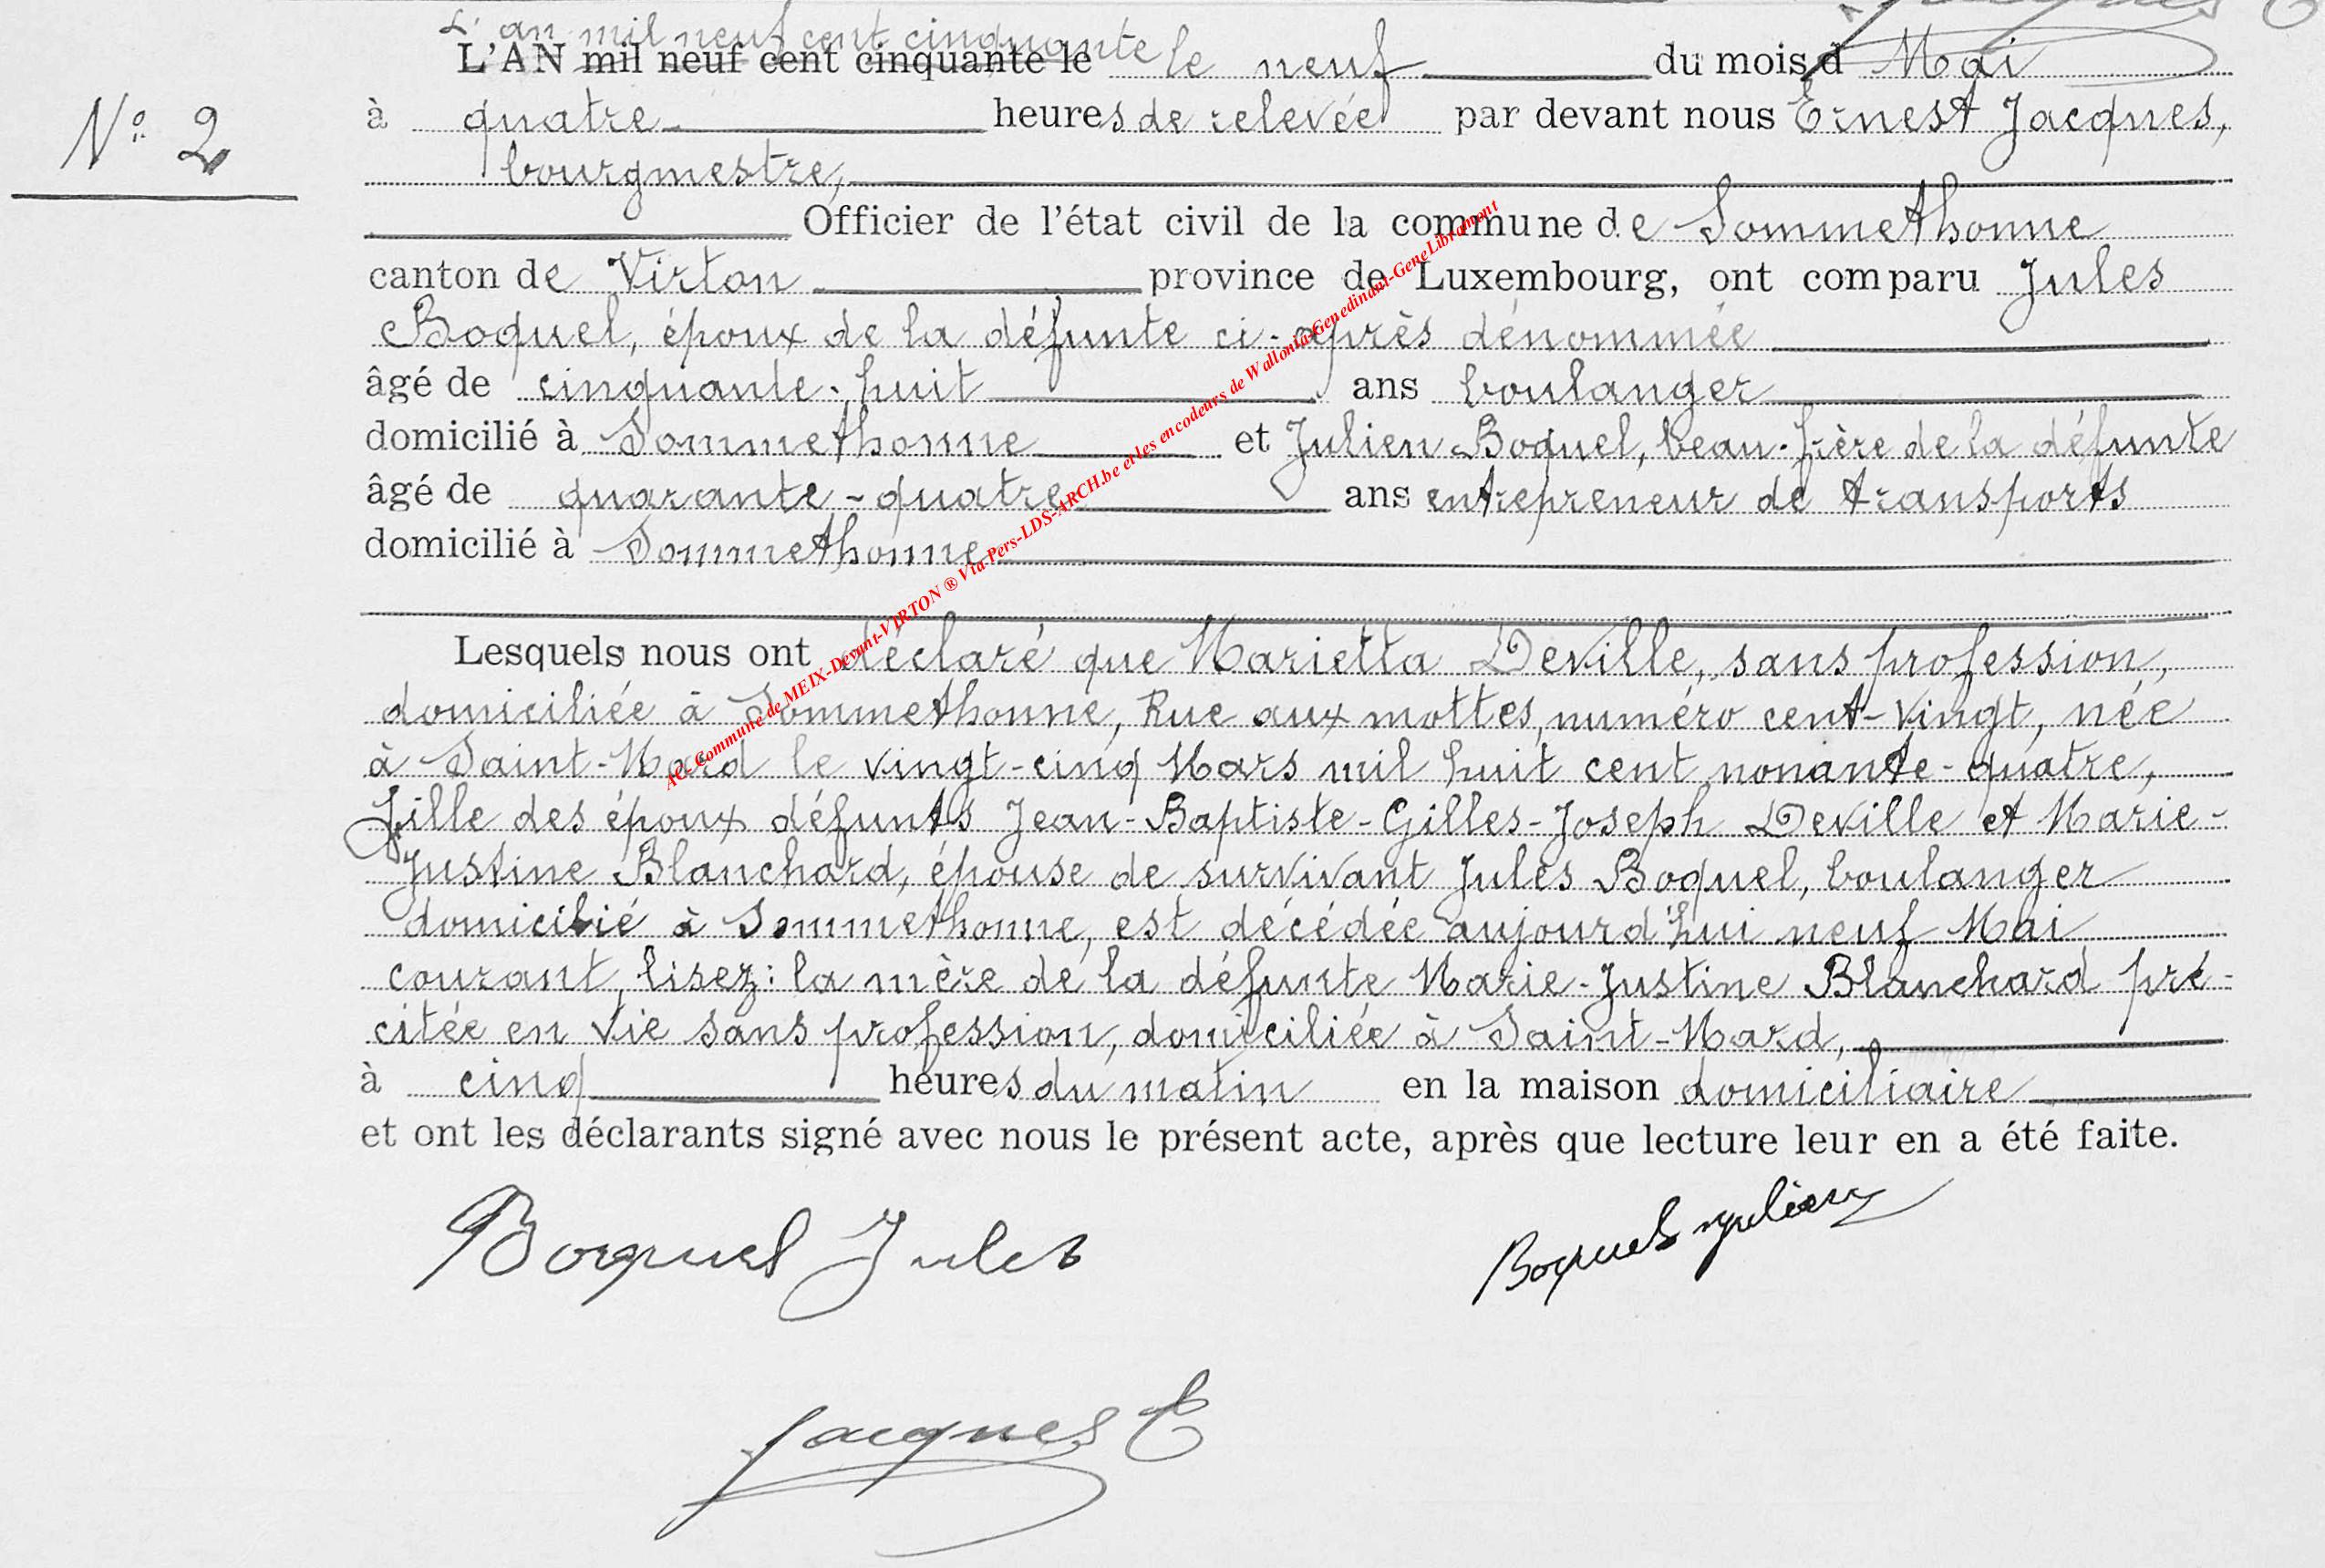 L'an mil neuf cent cinquante
L'AN mil neuf cent cinquante le le neuf du mois d Mai
N° 2
à quatre heures de relevée par devant nous Ernest Jacques,
bourgmestre,
Officier de l'état civil de la commune de Sommethonne
canton de Virton province de Luxembourg, ont comparu Jules
Boquel, époux de la défunte ci-après dénommée
âgé de cinquante-huit ans boulanger
domicilié à Sommethonne et Julien Boquel, beau-frère de la défunte
âgé de quarante-quatre ans entrepreneur de transports
domicilié à Sommethonne
Lesquels nous ont déclaré que Marietta Deville, sans profession,
domiciliée à Sommethonne, Rue aux mottes, numéro cent-vingt, née
à Saint-Mard le vingt-cinq Mars mil huit cent nonante-quatre,
fille des époux défunts Jean-Baptiste-Gilles-Joseph Deville et Marie-
Justine Blanchard, épouse de survivant Jules Boquel, boulanger
domicilié à Sommethonne, est décédée aujourd'hui neuf Mai
courant, lisez: la mère de la défunte Marie-Justine Blanchard pré-
citée en vie sans profession, domiciliée à Saint-Mard,
à cinq heures du matin en la maison domiciliaire
et ont les déclarants signé avec nous le présent acte, après que lecture leur en a été faite.
Boquel Jules
Boquel Julien
Jacques E
AC-Commune de MEIX-Devant-VIRTON ® Via-Pers-LDS-ARCH.be et les encodeurs de Wallonia-Genedinant-GeneLibramont